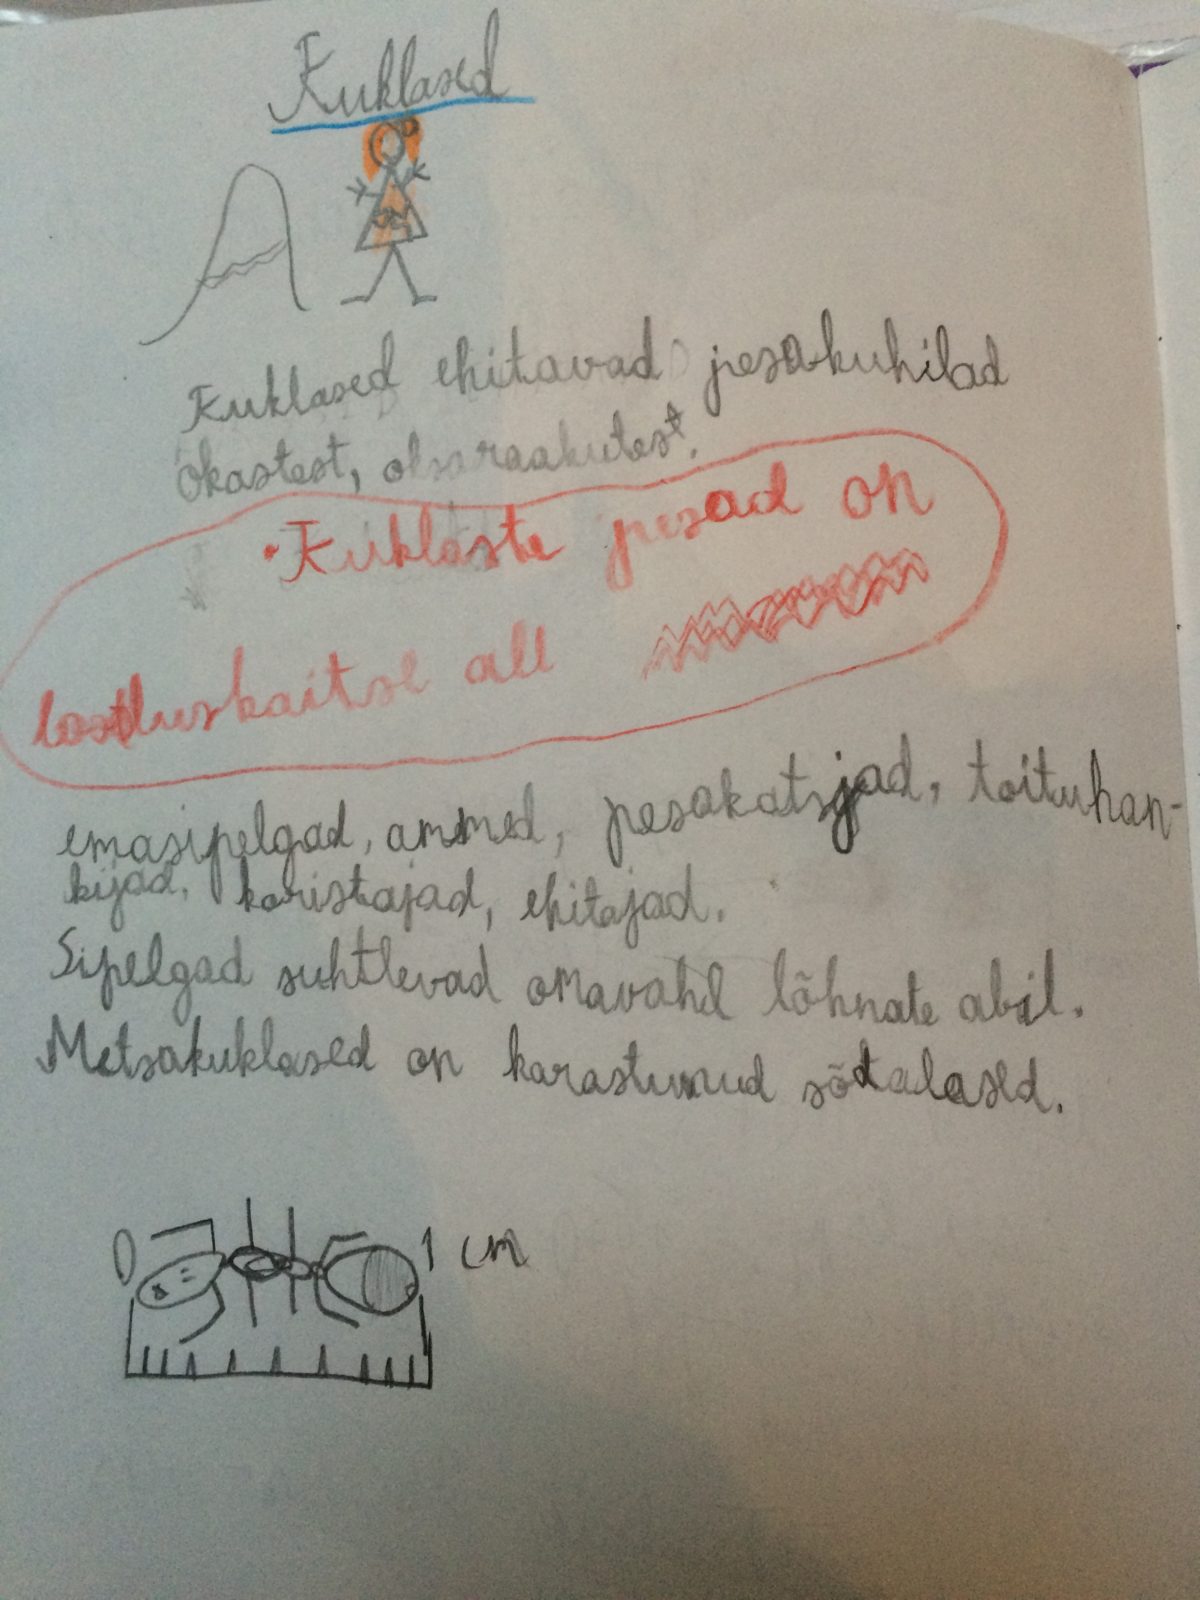 Kuklased
Kuklased ehitavad pesakuhilad
okastest, oksaraakutest.
· Kuklaste pesad on
looduskaitse all
emasipelgad, ammed, pesakatsjad, toituhan-
kijad, koristajad, ehitajad.
Sipelgad suhtlevad omavahel lõhnate abil.
Metsakuklased on karastunud sõdalased.
0 1 cm